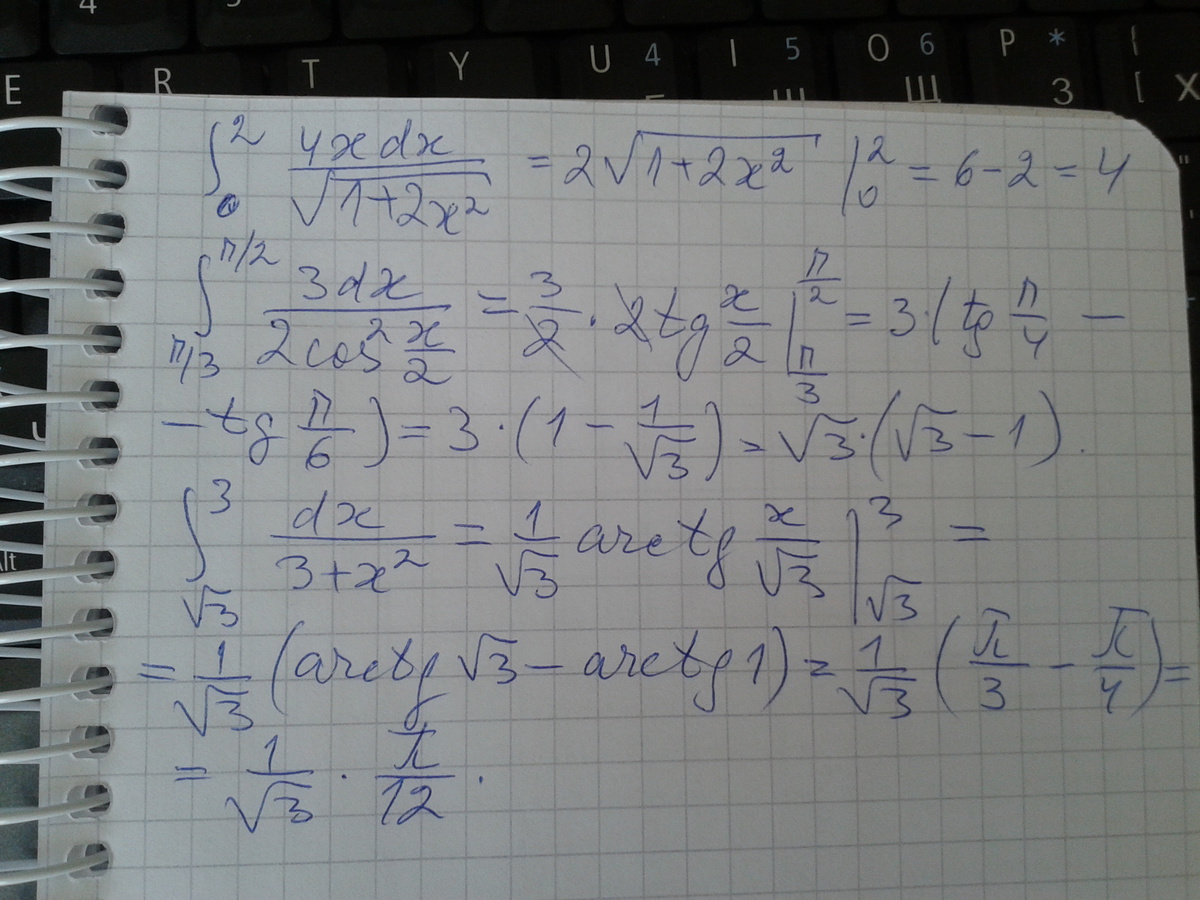 4
E R T Y U 4 I 5 O 6 P * { [
Щ З Х
∫₀² 4xdx/√(1+2x²) = 2√(1+2x²) |₀² = 6-2 = 4
∫_{π/3}^{π/2} 3dx/(2cos² x/2) = 3/2 · 2tg x/2 |_{π/3}^{π/2} = 3·(tg π/4 -
- tg π/6) = 3·(1 - 1/√3) = √3·(√3 - 1).
∫_{√3}^{3} dx/(3+x²) = 1/√3 arctg x/√3 |_{√3}^{3} =
= 1/√3 (arctg √3 - arctg 1) = 1/√3 (π/3 - π/4) =
= 1/√3 · π/12.